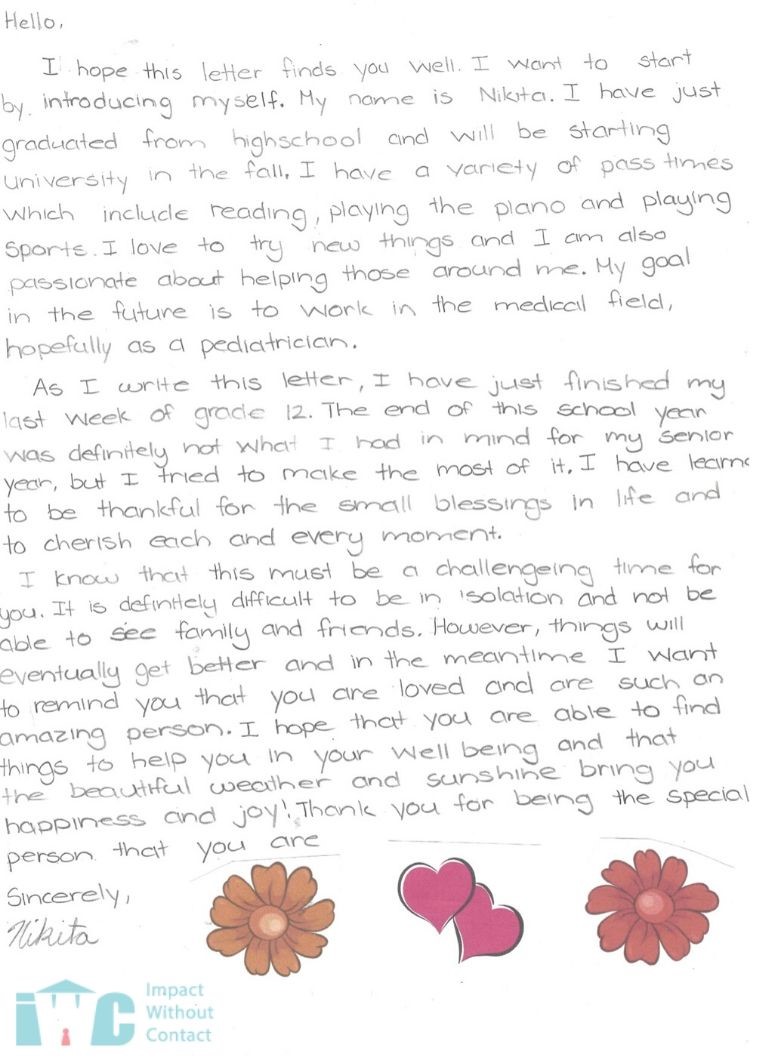 Hello,
I hope this letter finds you well. I want to start
by introducing myself. My name is Nikita. I have just
graduated from highschool and will be starting
university in the fall. I have a variety of pass times
which include reading, playing the piano and playing
sports. I love to try new things and I am also
passionate about helping those around me. My goal
in the future is to work in the medical field,
hopefully as a pediatrician.
As I write this letter, I have just finished my
last week of grade 12. The end of this school year
was definitely not what I had in mind for my senior
year, but I tried to make the most of it. I have learne
to be thankful for the small blessings in life and
to cherish each and every moment.
I know that this must be a challengeing time for
you. It is definitely difficult to be in isolation and not be
able to see family and friends. However, things will
eventually get better and in the meantime I want
to remind you that you are loved and are such an
amazing person. I hope that you are able to find
things to help you in your well being and that
the beautiful weather and sunshine bring you
happiness and joy! Thank you for being the special
person that you are
Sincerely,
Nikita
iWC Impact
Without
Contact